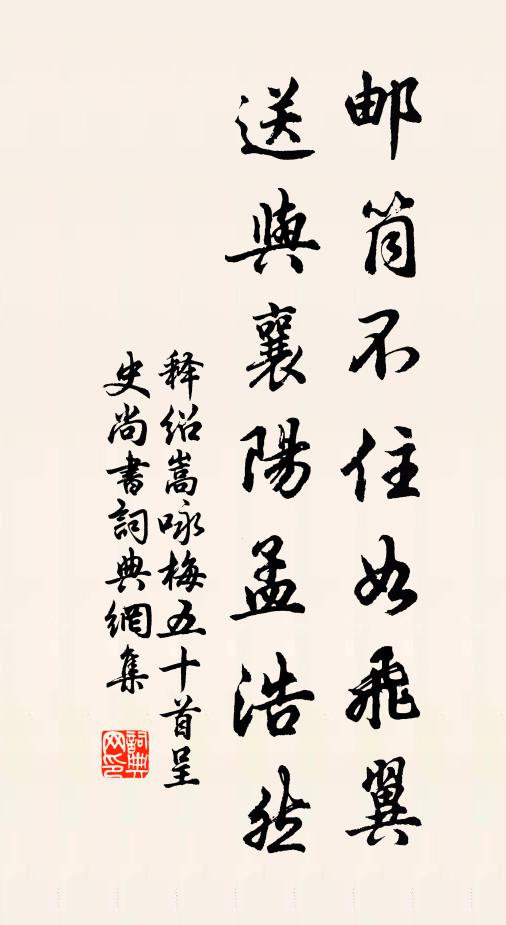 邮筒不住如飛翼
送與襄陽孟浩然
释绍嵩咏梅五十首呈
史尚書詞典網集
詞典
网印